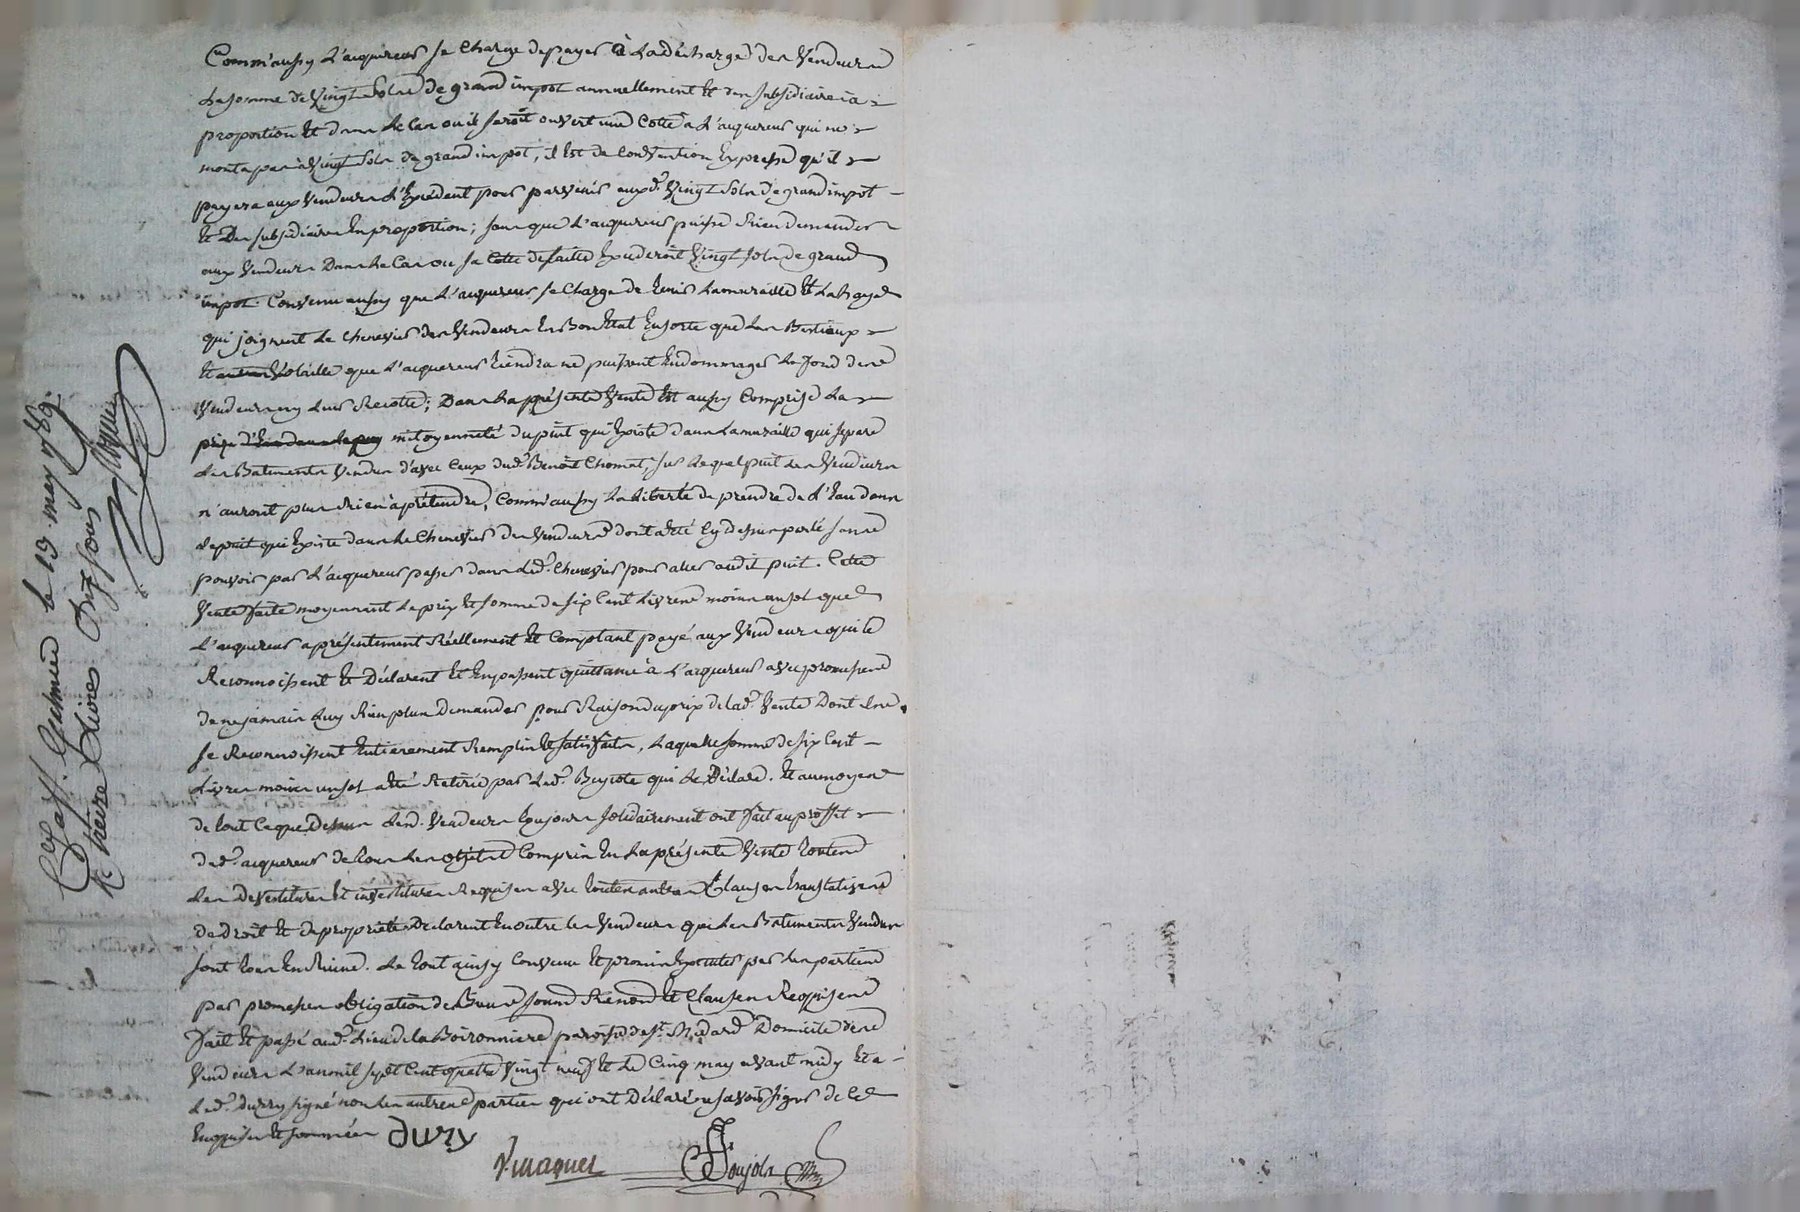 Comm'aussy L'acquereur se charge de payer à La décharge des Vendeurs
La somme de Vingt Sols de grand impot annuellement Et des subsidiaires à
proportion Et dans Le Cas ou il seroit ouvert une Cotte a L'acquereur qui ne
monta pas à Vingt Sols de grand impot, il Est de Convention Expresse qu'il
payera aux Vendeurs L'Excédent pour parvenir auxd. Vingt Sols de grand impot
Et Des subsidiaires En proportion; sans que L'acquereur puisse Rien demander
aux Vendeurs Dans Le Cas ou sa Cotte de taille Excederoit Vingt sols de grand
impot. Convenu aussy que L'acquereur se Charge de tenir La muraille Et La haye
qui joignent Le chenevier des Vendeurs En Bon Etat En sorte que Les Bestiaux
Et Volaille que L'acquereur tiendra ne puissent Endommager Le fond des
Vendeurs ny Leur Recolte; Dans La présente Vente Est aussy Comprise La
mitoyenneté du puit qui Existe dans La muraille qui separe
Les Batiments Vendus d'avec Ceux dud. Benoit Chomat, sur Lequel puit Les Vendeurs
n'auront plus Rien à prétendre, Comm'aussy La Liberté de prendre de L'Eau dans
Le puit qui Existe dans Le Chenevier des Vendeurs dont a été Cy dessus parlé sans
pouvoir par L'acquereur passer dans Led. Chenevier pour aller audit puit. Cette
Vente faite moyennant Le prix Et somme de six Cent Livres moins un sol que
L'acquereur a présentement Réellement Et Comptant payé aux Vendeurs qui Le
Reconnoissent Et Déclarent Et En passent quittance à L'acquereur avec promesse
de ne jamais Luy Rien plus Demander pour Raison du prix de Lad. Vente Dont Ils
se Reconnoissent Entierement Remplis Et satisfaits, Laquelle somme de six Cent
Livres moins un sol a été Retirée par Led. qui Le Déclare. Et au moyen
de tout Ce que Dessus Lesd. Vendeurs toujours solidairement ont fait au proffit
dud. acquereur de tous Les objets Compris En La présente Vente toutes
Les Devestitures Et investitures Requises avec toutes autres Clauses translatives
De Droit Et de propriété Declarent En outre les Vendeurs que Les Batiments Vendus
sont tous En Ruine. Le tout ainsy Convenu Et promis Executer par Les parties
par promesses obligation de Biens soumis Renon. Et Clauses Requises
fait Et passé aud. Lieu de La Boironniere paroisse de St. Médard Domicile des
Vendeurs L'an mil sept Cent quatre Vingt neuf Et Le Cinq may avant midy Et a
Led. Duvry signé non Les autres parties qui ont Déclaré ne savoir signer de Ce
Enquises Et sommées Duvry
V. maquet
Soujols
Galmier le 19. may 1789.
R. treize Livres Dix sous